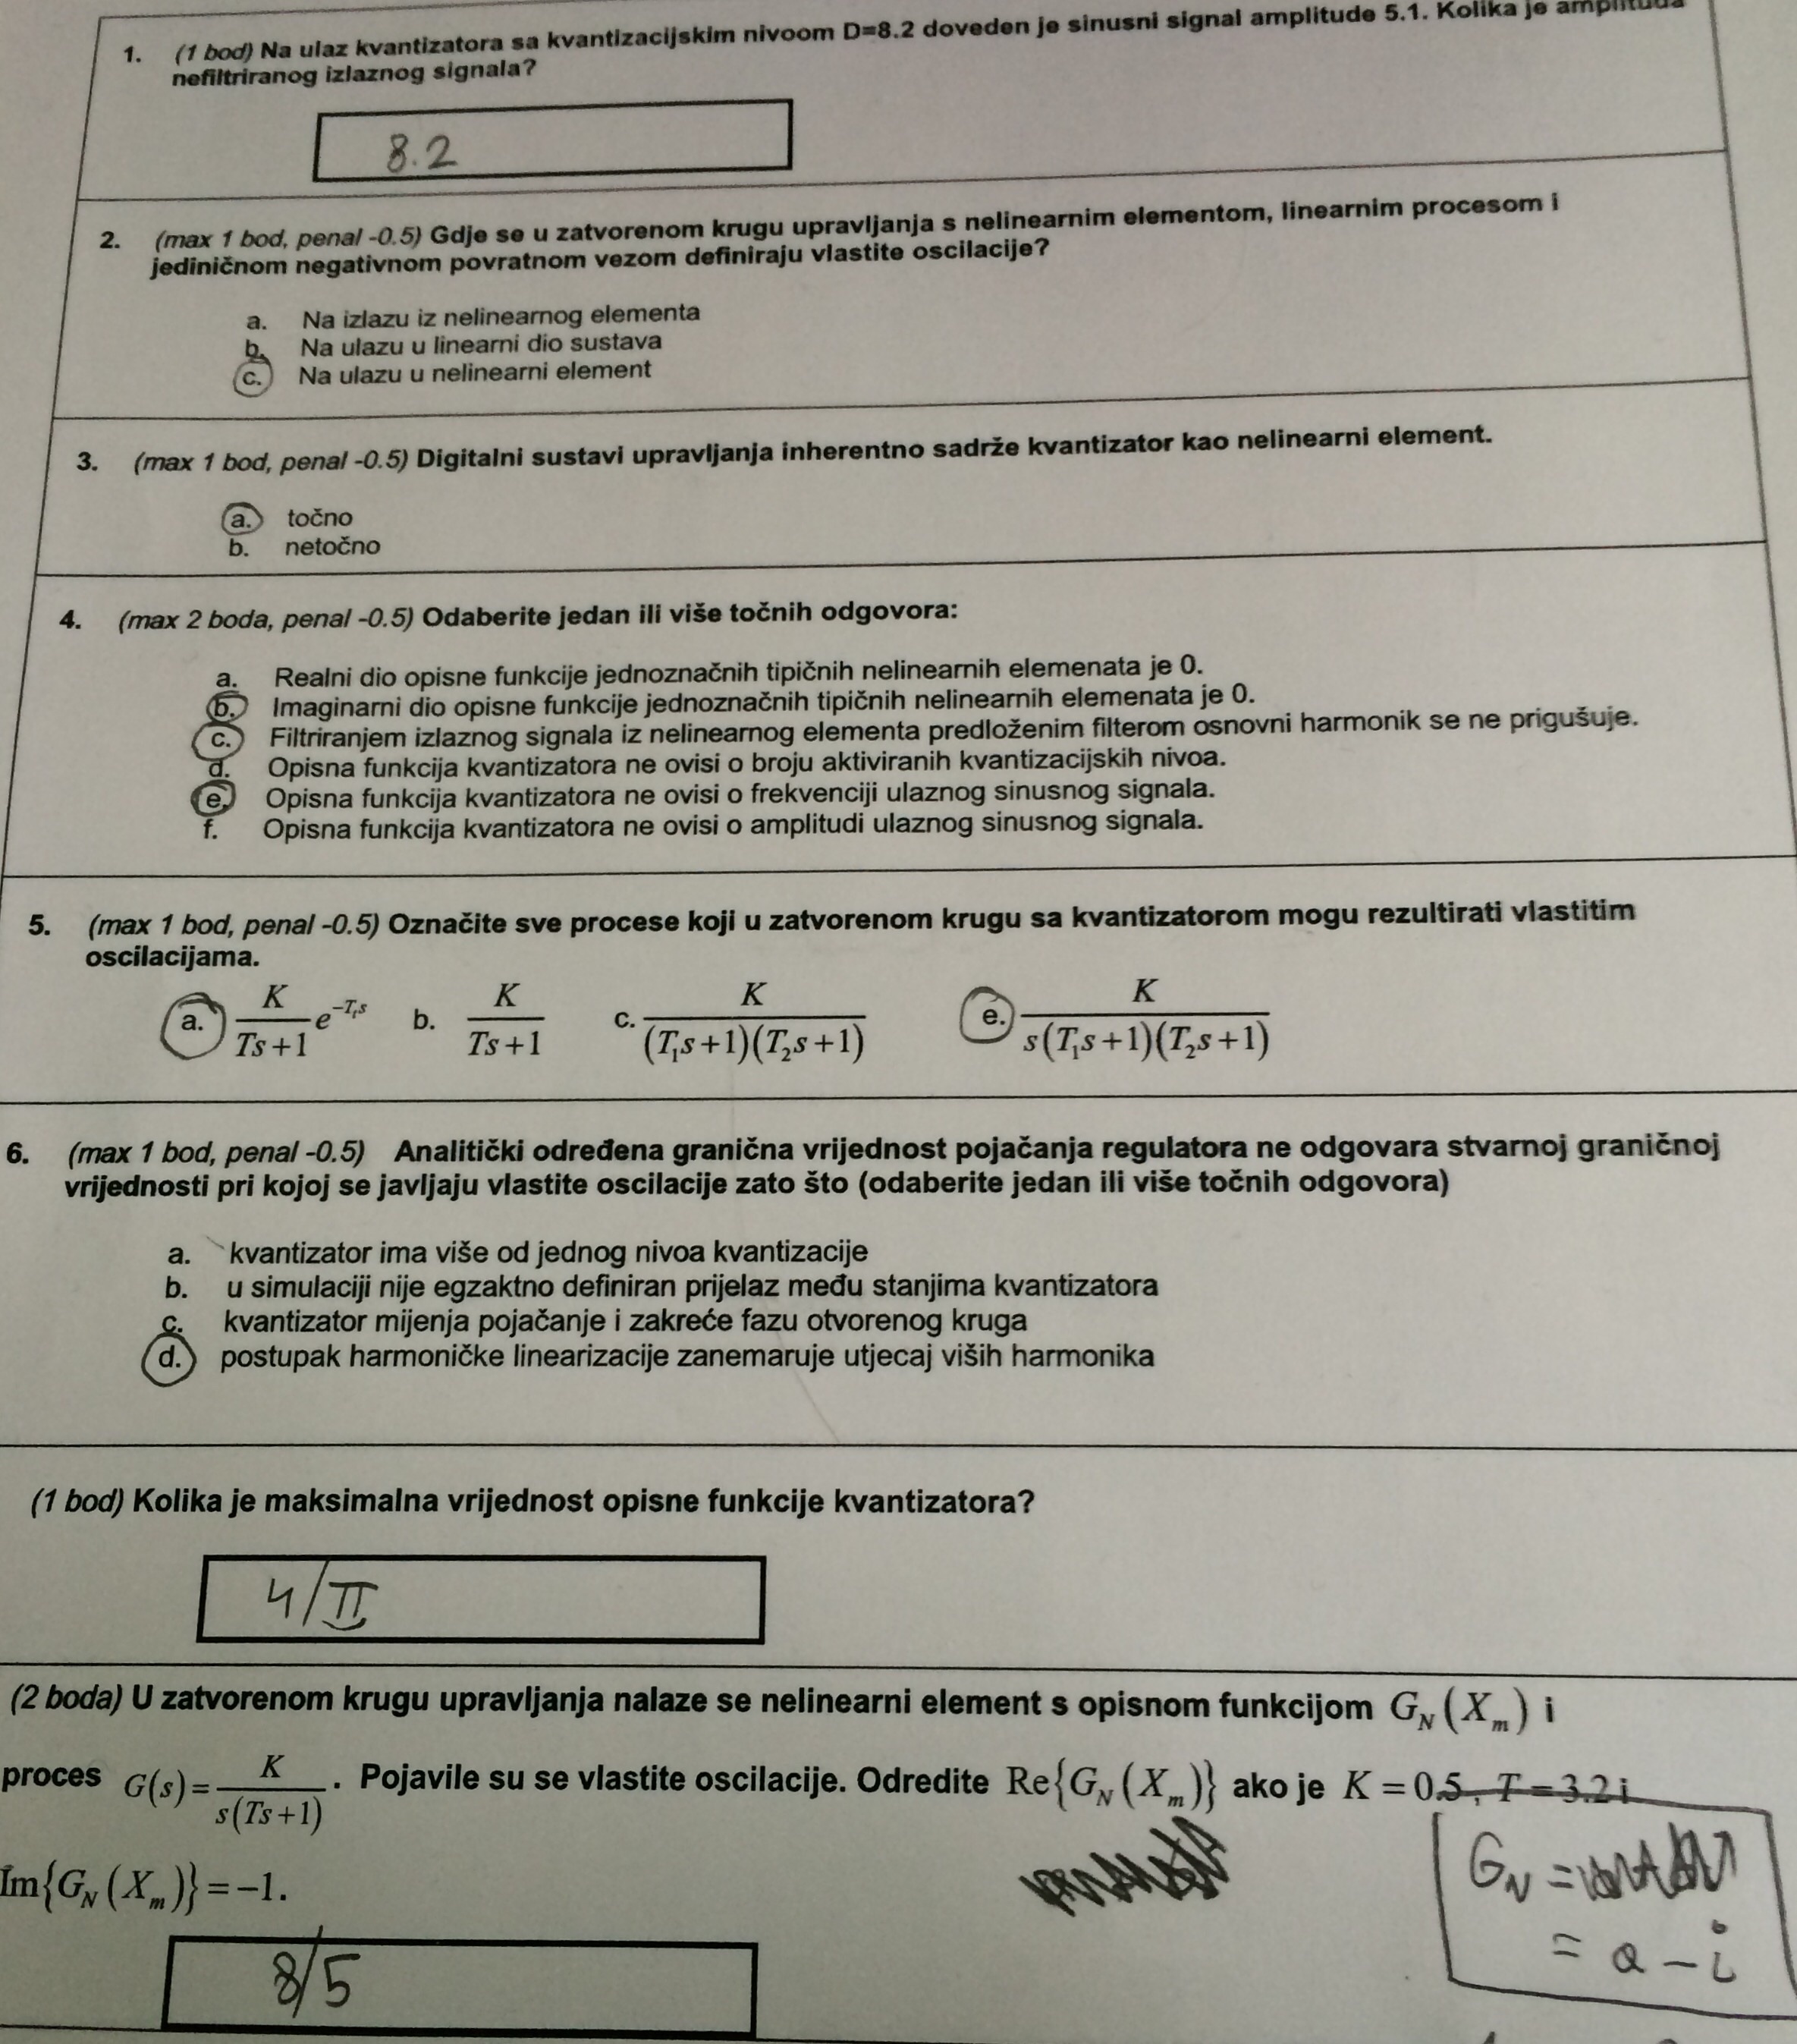 1. (1 bod) Na ulaz kvantizatora sa kvantizacijskim nivoom D=8.2 doveden je sinusni signal amplitude 5.1. Kolika je amplituda
nefiltriranog izlaznog signala?
8.2
2. (max 1 bod, penal -0.5) Gdje se u zatvorenom krugu upravljanja s nelinearnim elementom, linearnim procesom i
jediničnom negativnom povratnom vezom definiraju vlastite oscilacije?
a. Na izlazu iz nelinearnog elementa
b. Na ulazu u linearni dio sustava
c. Na ulazu u nelinearni element
3. (max 1 bod, penal -0.5) Digitalni sustavi upravljanja inherentno sadrže kvantizator kao nelinearni element.
a. točno
b. netočno
4. (max 2 boda, penal -0.5) Odaberite jedan ili više točnih odgovora:
a. Realni dio opisne funkcije jednoznačnih tipičnih nelinearnih elemenata je 0.
b. Imaginarni dio opisne funkcije jednoznačnih tipičnih nelinearnih elemenata je 0.
c. Filtriranjem izlaznog signala iz nelinearnog elementa predloženim filterom osnovni harmonik se ne prigušuje.
d. Opisna funkcija kvantizatora ne ovisi o broju aktiviranih kvantizacijskih nivoa.
e. Opisna funkcija kvantizatora ne ovisi o frekvenciji ulaznog sinusnog signala.
f. Opisna funkcija kvantizatora ne ovisi o amplitudi ulaznog sinusnog signala.
5. (max 1 bod, penal -0.5) Označite sve procese koji u zatvorenom krugu sa kvantizatorom mogu rezultirati vlastitim
oscilacijama.
a. K/(Ts+1) e^(-T_t s) b. K/(Ts+1) c. K/((T₁s+1)(T₂s+1)) e. K/(s(T₁s+1)(T₂s+1))
6. (max 1 bod, penal -0.5) Analitički određena granična vrijednost pojačanja regulatora ne odgovara stvarnoj graničnoj
vrijednosti pri kojoj se javljaju vlastite oscilacije zato što (odaberite jedan ili više točnih odgovora)
a. kvantizator ima više od jednog nivoa kvantizacije
b. u simulaciji nije egzaktno definiran prijelaz među stanjima kvantizatora
c. kvantizator mijenja pojačanje i zakreće fazu otvorenog kruga
d. postupak harmoničke linearizacije zanemaruje utjecaj viših harmonika
(1 bod) Kolika je maksimalna vrijednost opisne funkcije kvantizatora?
4/π
(2 boda) U zatvorenom krugu upravljanja nalaze se nelinearni element s opisnom funkcijom G_N(X_m) i
proces G(s)=K/(s(Ts+1)). Pojavile su se vlastite oscilacije. Odredite Re{G_N(X_m)} ako je K=0.5, T=3.2 i
Im{G_N(X_m)}=-1.
G_N =
= a - i
8/5